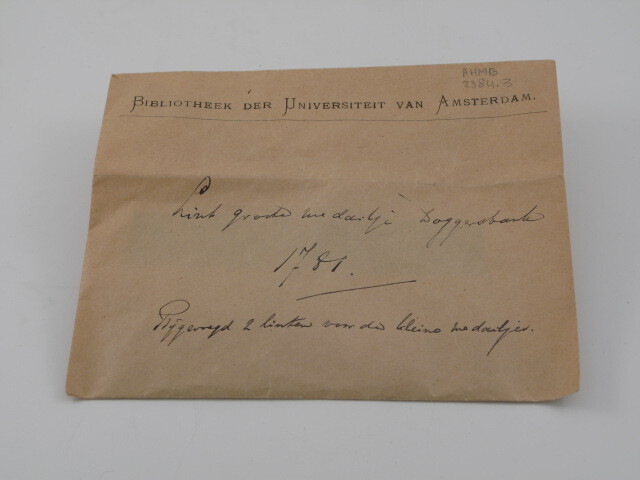 AHMB
2384.3
BIBLIOTHEEK DER UNIVERSITEIT VAN AMSTERDAM.
Lint groote medailje Doggersbank
1781.
Bijgevoegd 2 linten van de kleine medailjes.